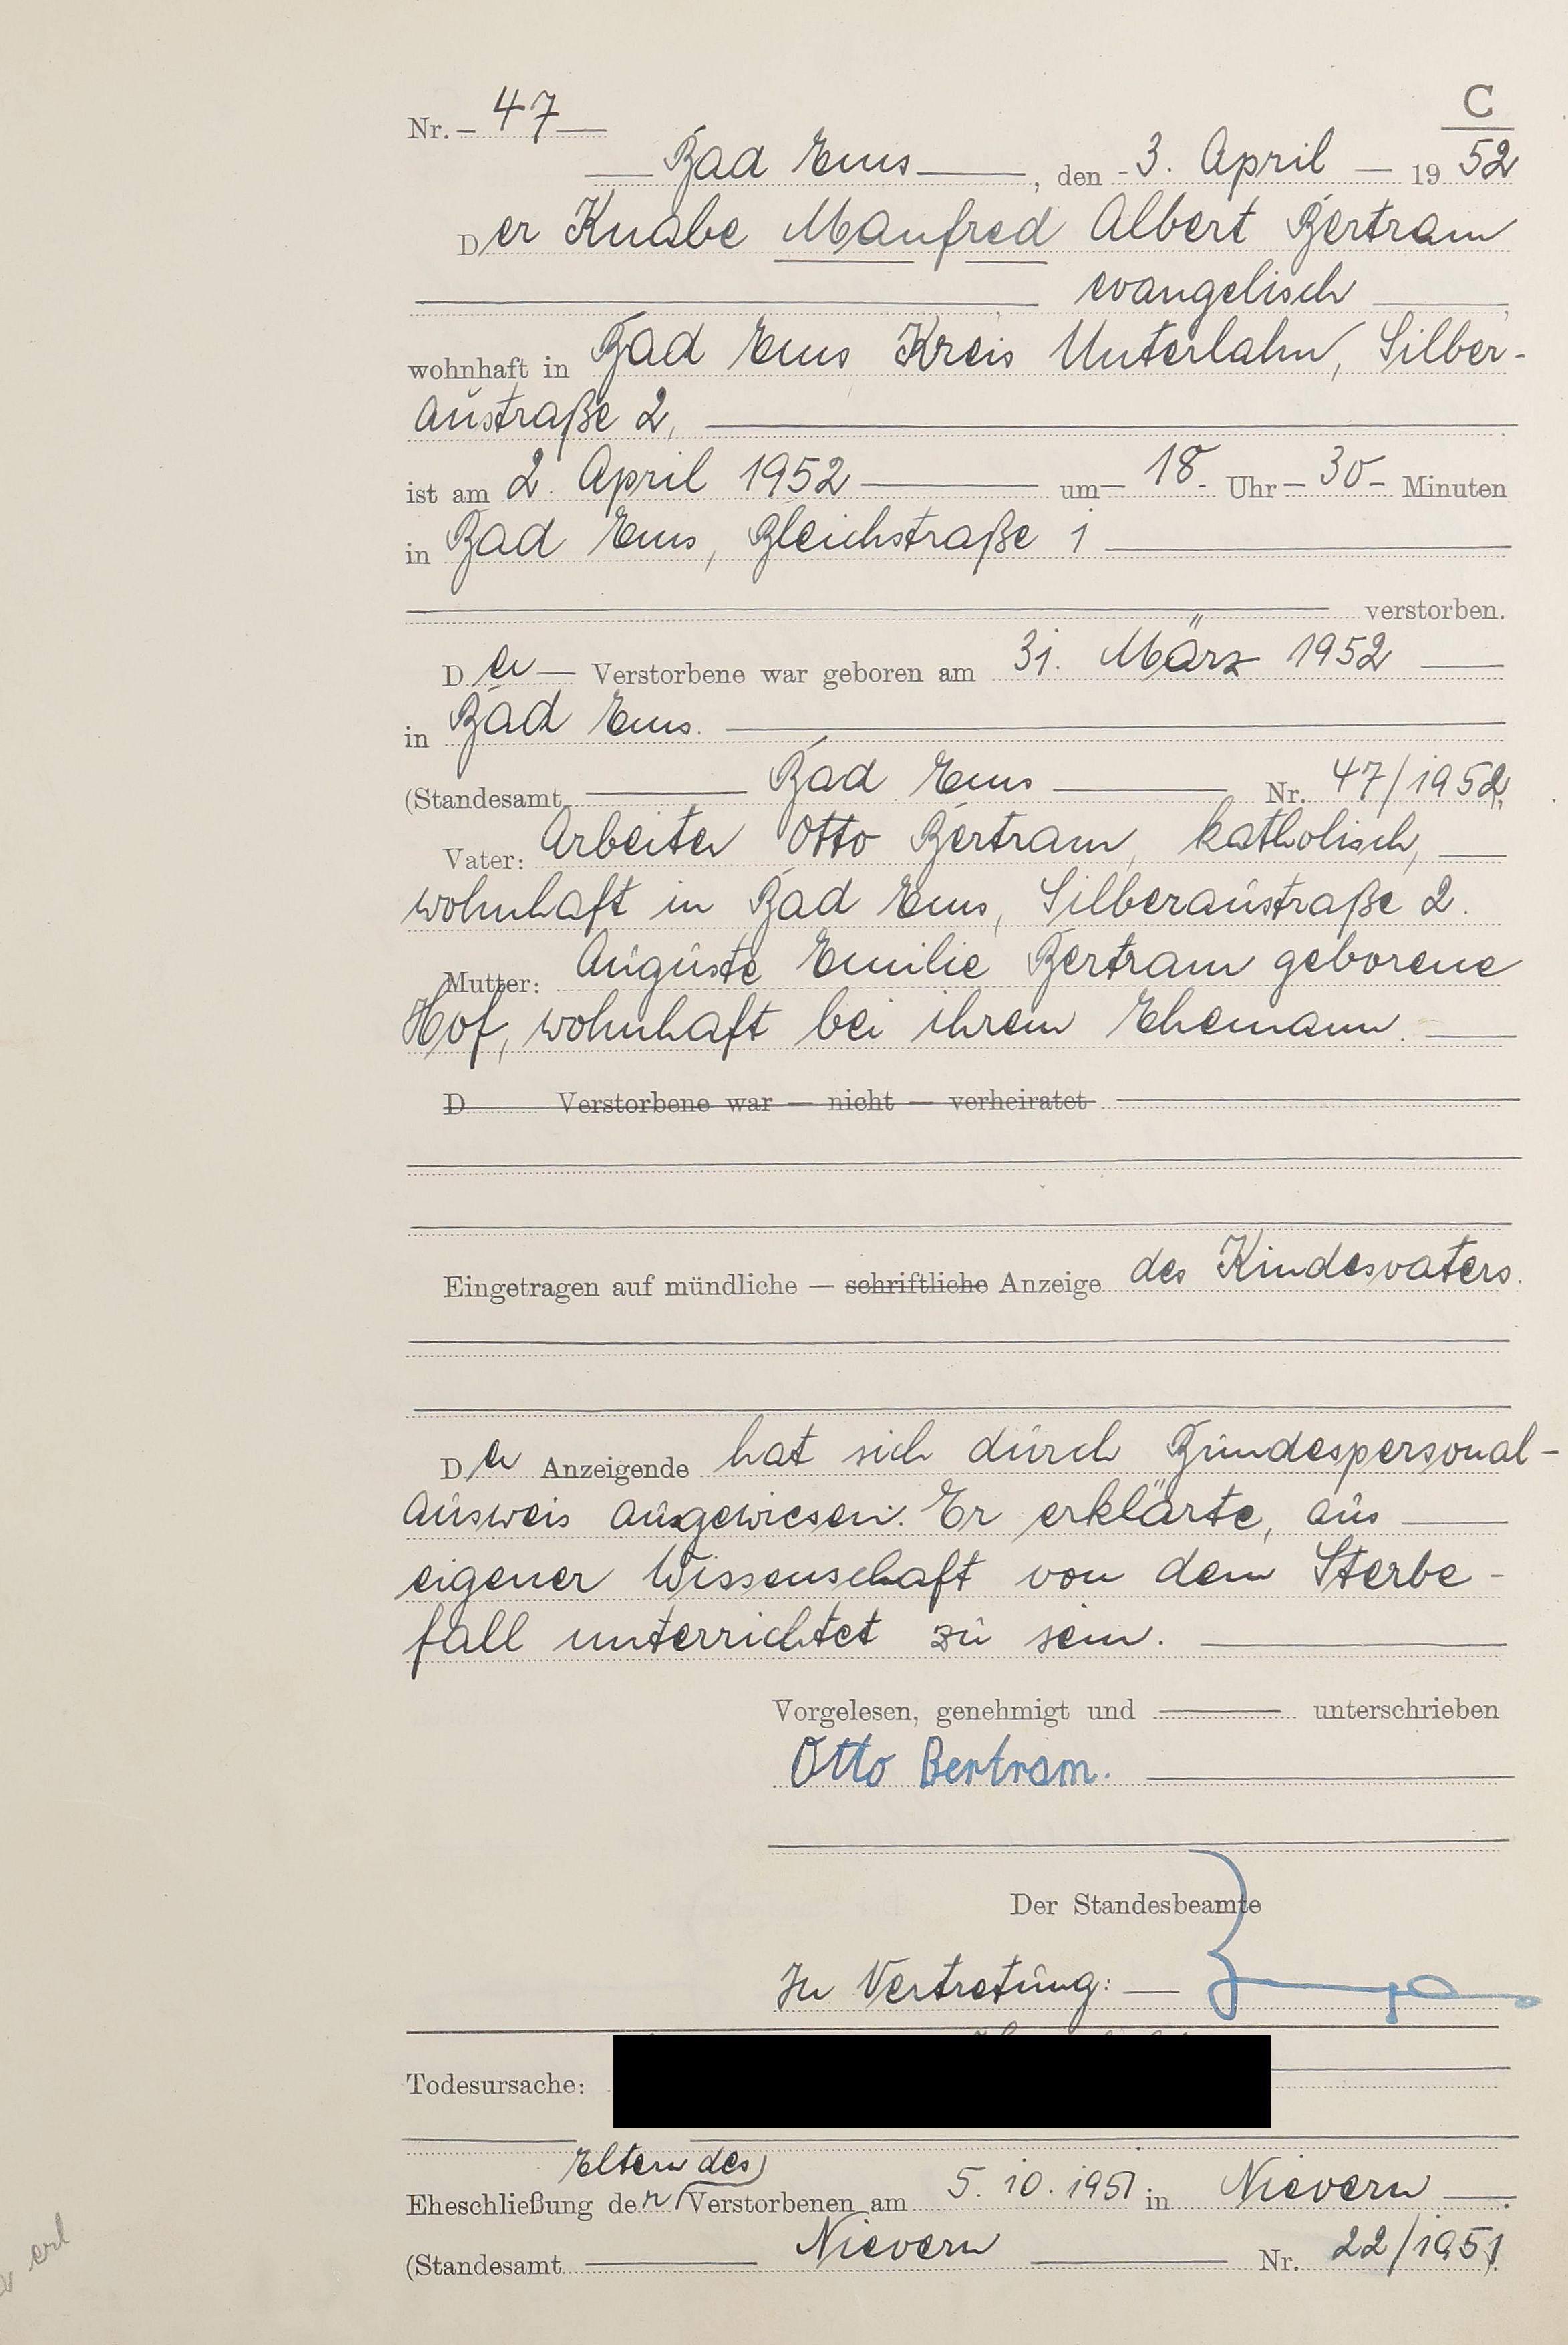 C
Nr. 47
Bad Ems, den 3. April 1952
Der Knabe Manfred Albert Bertram
evangelisch
wohnhaft in Bad Ems Kreis Unterlahn, Silber-
austraße 2,
ist am 2. April 1952 um 18 Uhr 30 Minuten
in Bad Ems, Bleichstraße 1
verstorben.
Der Verstorbene war geboren am 31. März 1952
in Bad Ems.
(Standesamt Bad Ems Nr. 47/1952)
Vater: Arbeiter Otto Bertram, katholisch,
wohnhaft in Bad Ems, Silberaustraße 2.
Mutter: Auguste Emilie Bertram geborene
Hof, wohnhaft bei ihrem Ehemann.
D Verstorbene war — nicht — verheiratet
Eingetragen auf mündliche — schriftliche Anzeige des Kindesvaters.
Der Anzeigende hat sich durch Bundespersonal-
ausweis ausgewiesen. Er erklärte, aus
eigener Wissenschaft von dem Sterbe-
fall unterrichtet zu sein.
Vorgelesen, genehmigt und unterschrieben
Otto Bertram.
Der Standesbeamte
In Vertretung:
Todesursache:
Eltern des
Eheschließung der Verstorbenen am 5. 10. 1951 in Nievern
(Standesamt Nievern Nr. 22/1951)
erl